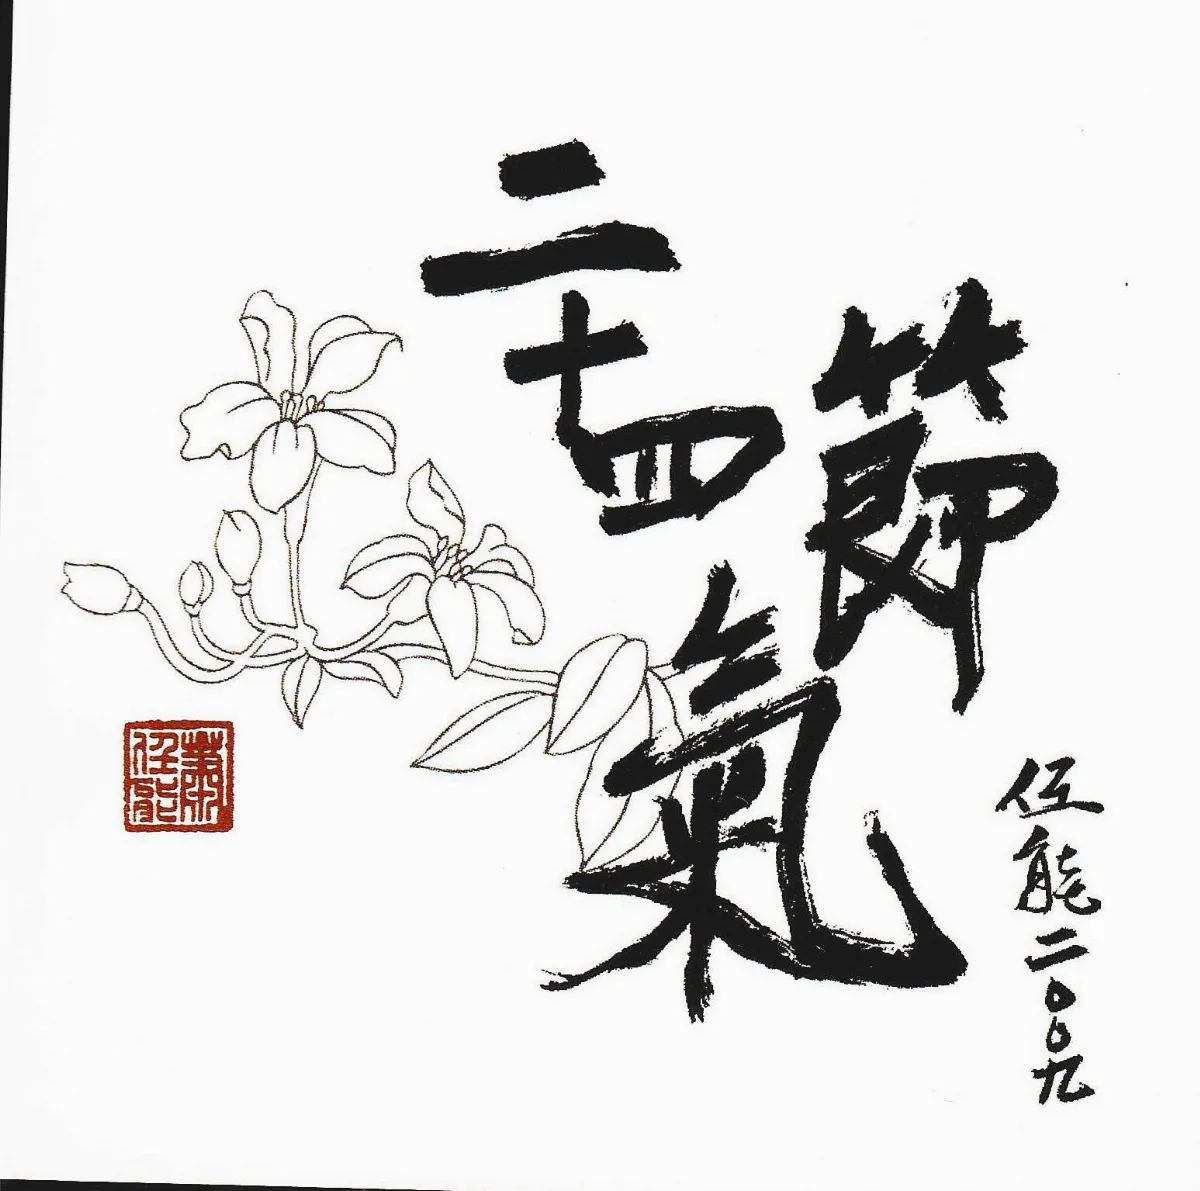 二十四
節氣
任能二〇〇九
蕭任能